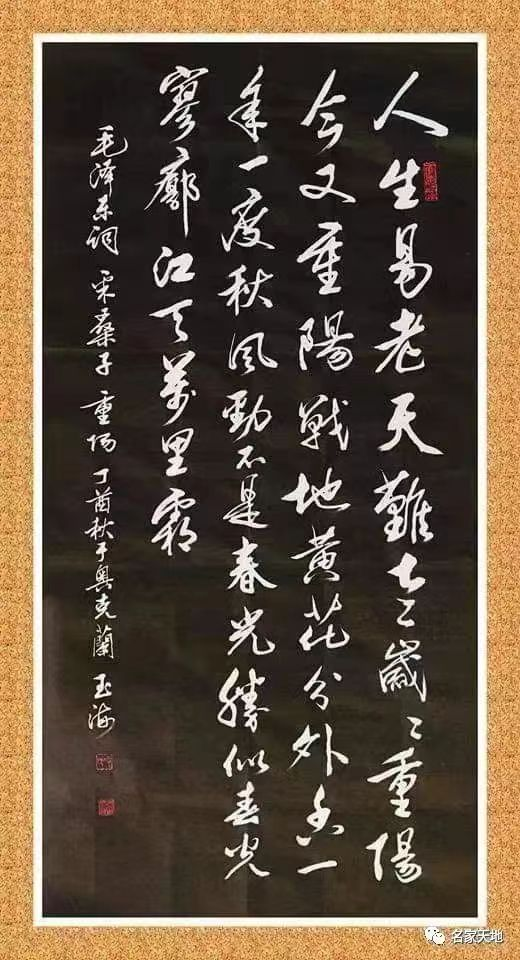 人生易老天難老歲〻重陽
今又重陽戰地黃花分外香一
年一度秋风勁不是春光勝似春光
寥廓江天萬里霜
毛泽东词 采桑子 重阳 丁酉秋于奥克蘭 玉海
名家天地